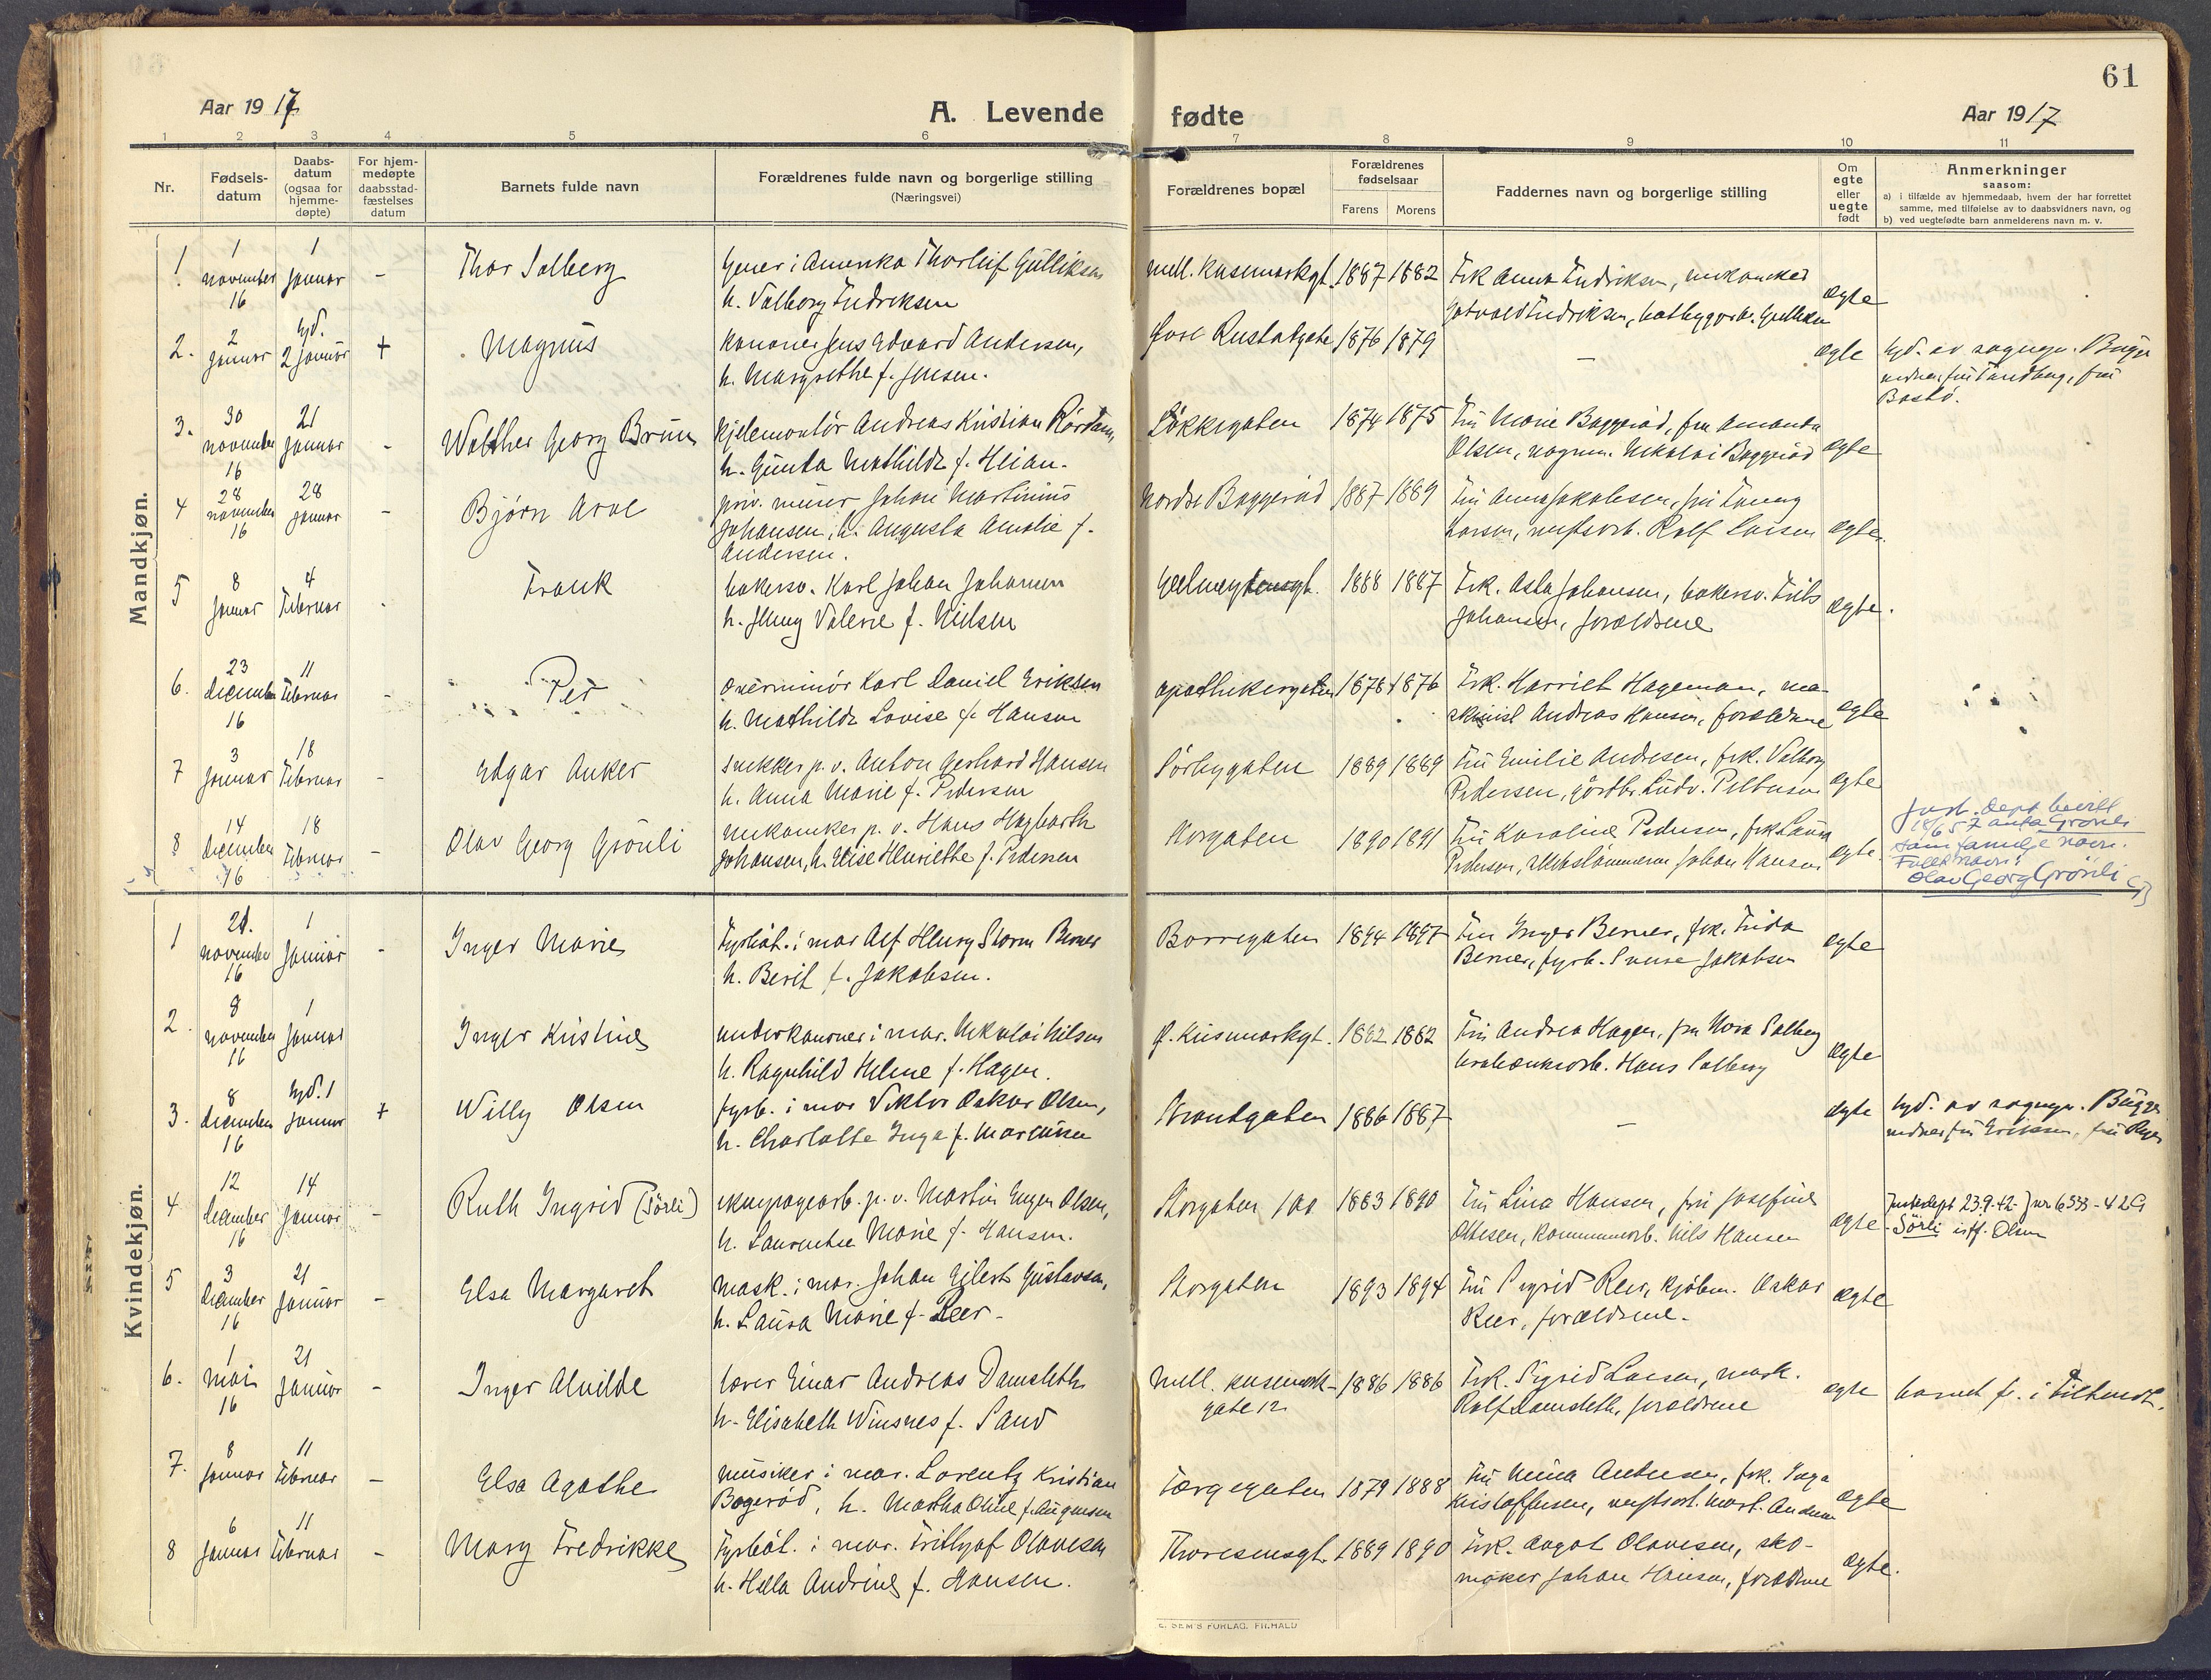 61
Aar 1917
A. Levende fødte
Aar 1917
1 2 3 4 5 6 7 8 9 10 11
Nr.
Fødsels-
datum
Daabs-
datum
(ogsaa for
hjemme-
døpte)
For hjem-
medøpte
daabsstad-
fæstelses
datum
Barnets fulde navn
Forældrenes fulde navn og borgerlige stilling
(Næringsvei)
Forældrenes bopæl
Forældrenes
fødselsaar
Farens Morens
Faddernes navn og borgerlige stilling
Om
egte
eller
uegte
født
Anmerkninger
saasom:
a) i tilfælde av hjemmedaab, hvem der har forrettet
samme, med tilføielse av to daabsvidners navn, og
b) ved uegtefødte barn anmelderens navn m. v.
Mandkjøn.
1. 1 november 16 1 Januar - Thor Solberg
i Amerika Thorleif Gulliksen
h. Valborg Fredriksen
mell. Kusemarkgt. 1887 1882
Frk Anna Fredriksen, mekaniker
Fredriksen, egte
2. 2 Januar hjd. 2 Januar + Magnus
kanoner Jens Edvard Andersen,
h. Margrethe f. Jensen.
1876 1879 - egte
hjd. av sognepr. Bugge
3. 30 november 16 21 Januar - Walther Georg Bruun
kjelemontør Andreas Kristian Rördam,
h. Gunda Mathilde f. Heian.
Løkkegaten 1874 1875
Fru Marie Baggerød, fru Amanda
Olsen, Nikolai Baggerød egte
4 28 november 16 28 Januar - Bjørn Arve
priv. murer Johan Martinius
Johansen, h. Augusta Amalie f.
Andersen.
Nordre Baggerød 1887 1889
Fru Anna Jakobsen, fru Fanny
Larsen, verftsarb. Rolf Larsen egte.
5 8 Januar 4 Februar - Frank
bakersv. Karl Johan Johansen
h. Jenny Valerie f. Nielsen
1888 1887
Frk. Asta Johansen, bakersv.
Johansen, forældrene egte.
6. 23 december 16 11 Februar - Per
overminör Karl Daniel Eriksen
h. Mathilde Lovise f. Hansen
apothekergaten 1878 1876
Frk. Harriet Hageman, ma-
skinist Andreas Hansen, forældrene egte
7 3 Januar 18 Februar - Edgar Anker
snekker p. v. Anton Gerhard Hansen
h. Anna Marie f. Pedersen
Sørbygaten 1889 1889
Fru Emilie Andresen, frk. Valborg
Pedersen, Ludv. egte
8 14 december 16 18 Februar - Olav Georg Grönli
mekaniker p. v. Hans Hagbarth
Johansen, h. Elise Henriethe f. Pedersen
Storgaten 1890 1891
Fru Karoline Pedersen, frk Laura
Pedersen, Johan Hansen egte
Just. Dept. bevill.
18/6 57 anta Grønli
som familje navn.
Fullt navn:
Olav Georg Grönli
Kvindekjøn.
1 21. november 16 1 Januar - Inger Marie
Fyrbøt. i mar Alf Henry Storm Berner
h. Berit f. Jakobsen.
Borregaten 1894 1897
Fru Inger Berner, frk. Frida
Berner, fyrb. Sverre Jakobsen egte
2. 9 november 16 1 Januar Inger Kristine
underkanoner i mar. Nikolai Nilsen
h. Ragnhild Helene f. Hagen.
1882 1882
Fru Andrea Hagen, fru Nora Solberg
Hans Solberg egte
3. 8 december 16 hjd. 1 Januar + Willy Olsen
fyrb. i mar Viktor Oskar Olsen,
h. Charlotte Inga f.
Strandgaten 1886 1887 - egte
hjd. av sognepr. Bugge
4 12 december 16 14 Januar - Ruth Ingrid (Sörli)
p. v. Martin Olsen,
h. Laurentze Marie f. Hansen.
Storgaten 100 1883 1890
Fru Lina Hansen, fru Josefine
Ottesen, Nils Hansen egte
Justisdept 23.9.42 - J nr 6533 - 42 G
Sörli istf. Olsen
5 3 december 16 21 Januar - Elsa Margaret
mask. i mar. Johan Eilert Gustavsen,
h. Laura Marie f. Reer -
Storgaten 1893 1894
Fru Sigrid Reer, kjøbm. Oskar
Reer, forældrene. egte
6. 1 mai 16 21 Januar - Inger Alvilde
lærer Einar Andreas Damsleth
h. Elisabeth Winsnes f. Sand
Mell. kusemark-
gate 12
1886 1886
Frk. Sigrid Larsen, mask.
Rolf Damsleth, forældrene egte
barnet f. i
7. 8 Januar 11 Februar - Elsa Agathe
musiker i mar. Lorentz Kristian
Bagerød, h. Martha Oline f.
Torgegaten 1879 1888
Fru Mina Andresen, frk. Inga
Kristoffersen, egte
8 6 Januar 11 Februar - Mary Fredrikke
Fyrbøt. i mar. Fritjof Olavesen
h. Hella Andrine f. Hansen.
Thoresensgt. 1889 1890
Frk. Aagot Olavesen, sko-
maker Johan Hansen, forældrene egte.
E. SEM'S FORLAG, FR.HALD